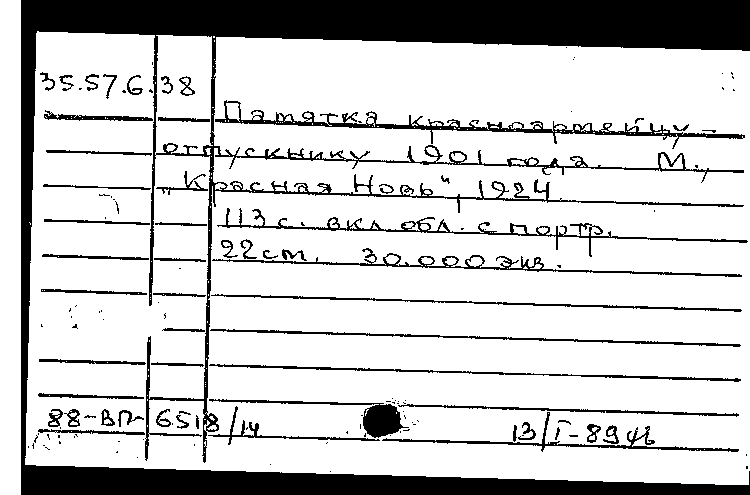 35.57.6.38
Памятка красноармейцу-
отпускнику 1901 года. М.,
„Красная Новь", 1924
113 с. вкл. обл. с портр.
22 см. 30.000 экз.
88-ВП-6518/14 13/I-89